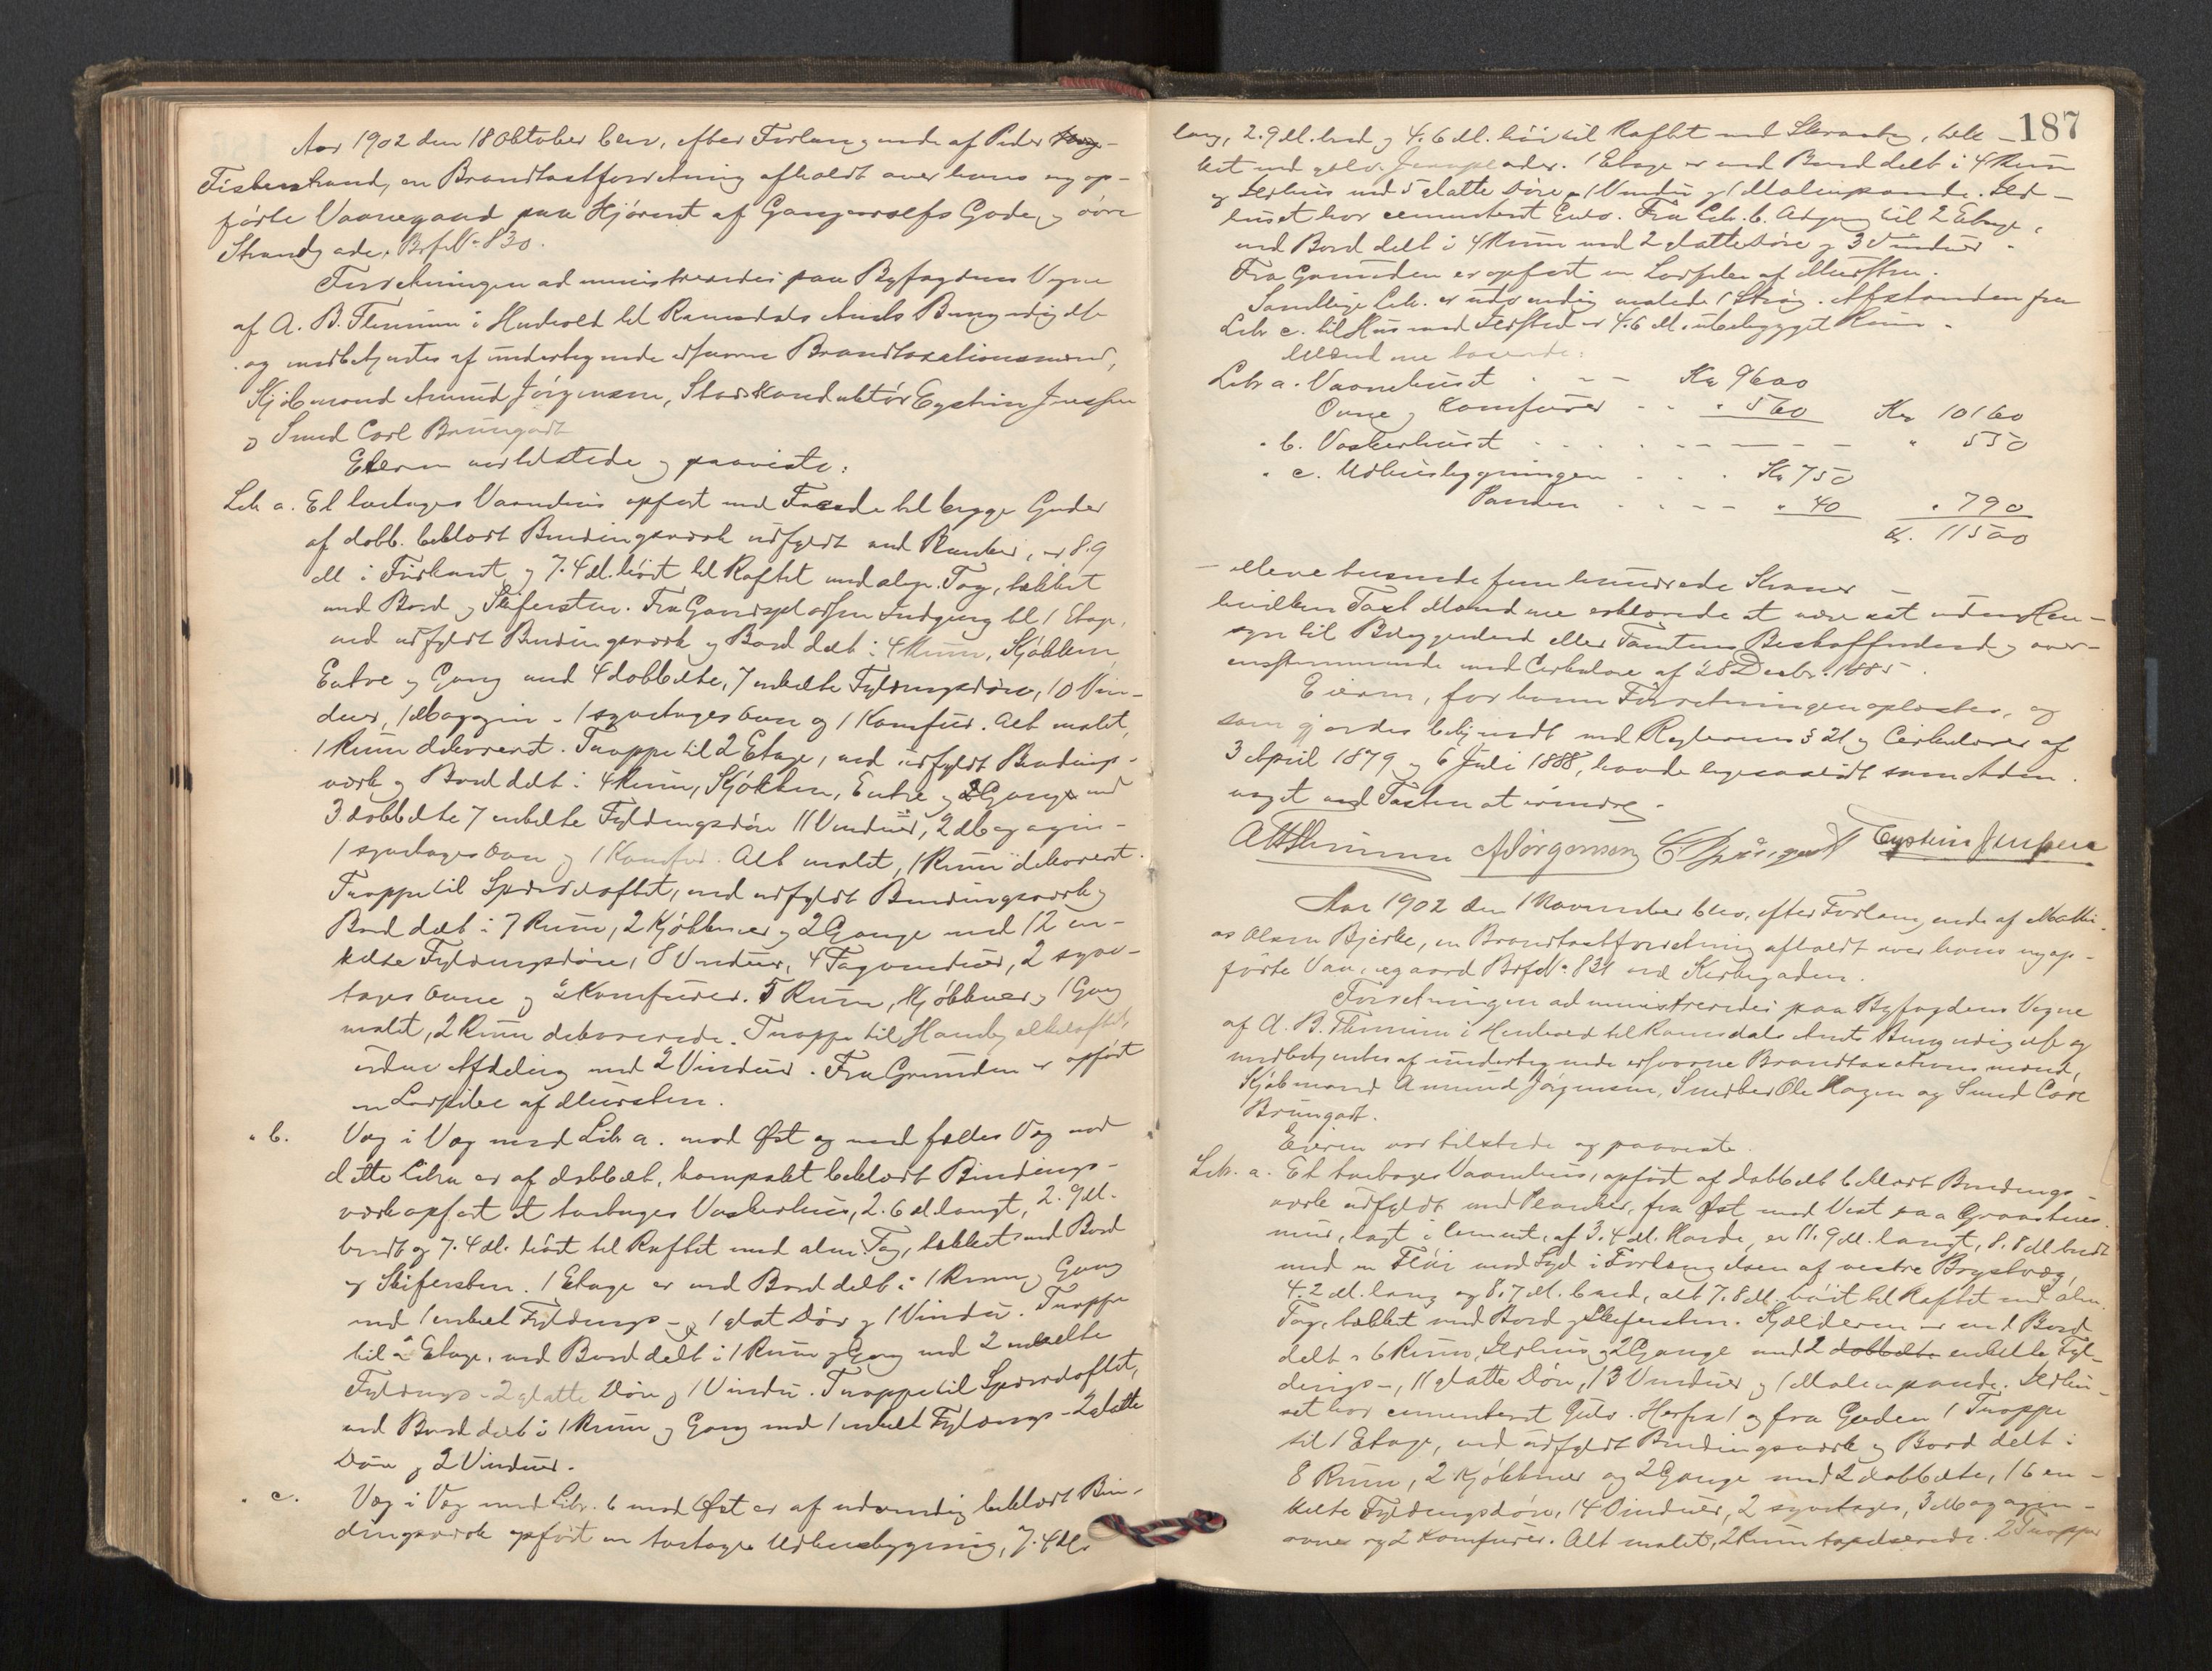 Aar 1902 den 18 Oktober blev, efter Forlangende af Peder
Fiskerstrand, en Brandtaxtforretning afholdt over hans nyop-
førte Vaaningaard paa Hjørnet af Gangerolfs Gade og øvre
Strandgade, Brf.No 830.
Forretningen administreredes paa Byfogdens Vegne
af A. B. Flemmen i Henhold til Ramsdals Amts Bemyndigelse
og medbetjentes af undertegnede edsvorne Brandtaxationsmænd,
Kjøbmand Amund Jörgensen, Stadskonduktør Eystein Jenssen
og Smed Carl Brüngardt
Eieren var tilstede og paaviste:
Litr a. Et toetages Vaanehus opført med Facade til begge Gader
af dobb. beklædt Bindingsverk udfyldt med Planker, er 8.9
M i Firkant og 7.4 M. høit til Raftet med alm. Tag, tækket
med Bord og Skifersten. Fra Gaardspladsen Indgang til 1 Etage,
med udfyldt Bindingsværk og Bord delt i 4 Rum, Kjøkken
Entre og Gang med 4 dobbelte, 7 enkelte Fyldingsdøre, 10 Vin-
duer, 1 Magazin - 1 syvetages Ovn og 1 Komfur. Alt malet,
1 Rum dekoreret. Trappe til 2 Etage, med udfyldt Bindings-
værk og Bord delt i 4 Rum, Kjøkken, Entre og 2 Gange med
3 dobbelte 7 enkelte Fyldingsdøre 11 Vinduer, 2 Magazin-
1 syvetages Ovn og 1 Komfur. Alt malet, 1 Rum dekoreret.
Trappe til Sperreloftet, med udfyldt Bindingsværk og
Bord delt i 7 Rum, 2 Kjøkkener og 2 Gange med 12 en-
kelte Fyldingsdøre, 8 Vinduer, 4 Tagvinduer, 2 syve-
tages Ovne og 2 Komfurer. 5 Rum, Kjøkkener og 1 Gang
malet, 2 Rum dekorerede. Trappe til Hanebjelkeloftet,
uden Afdeling med 2 Vinduer. Fra Grunden er opført
en Lodpibe af Mursten.
" b. Væg i Væg med Litr a. mod Øst og med fælles Væg med
dette Litra er af dobbelt, kompakt beklædt Bindings-
værk opført et toetages Vaskerhus, 2.6 M langt, 2.9 M.
bredt og 7.4 M. høit til Raftet med alm. Tag, tækket med Bord
og Skifersten. 1 Etage er med Bord delt i 1 Rum og Gang
med 1 enkel Fyldings- og 1 glat Dør og 1 Vindu. Trappe
til 2 Etage, med Bord delt i 1 Rum og Gang med 2 enkelte
Fyldings- 2 glatte Døre og 1 Vindu. Trappe til Sperreloftet,
med Bord delt i 1 Rum og Gang med 1 enkelt Fyldings- 2 glatte
Døre og 2 Vinduer.
" c. Væg i Væg med Litr. b mod Øst er af udvendig beklædt Bin-
dingsværk opført en toetages Udhusbygning, 7.4 M.
187
lang, 2.9 M. bred og 4.6 M. høi til Raftet med Skraatag, tæk-
ket med galv. Jernplader. 1 Etage er med Bord delt i 4 Rum
og Ildhus med 5 glatte Døre, 1 Vindu og 1 Malenpande. Ild-
huset har cementeret Gulv. Fra Litr. b. Adgang til 2 Etage,
med Bord delt i 4 Rum med 2 glatte Døre og 3 Vinduer.
Fra Grunden er opført en Lodpibe af Mursten.
Samtlige Litr. er udvendig malede 1 Strøg. Afstanden fra
Litr c. til Hus med Ildsted er 4.6 M. ubebygget Rum.
Mændene taxerede:
Litr a. Vaanehuset Kr 9600
Ovne og Komfurer " 560 Kr 10160
" b. Vaskerhuset " 550
" c. Udhusbygningen Kr 750
Panden " 40 " 790
Kr. 11500
- elleve tusinde fem hundrede Kroner -
hvilken Taxt Mændene erklærede at være sat uden Hen-
syn til Byggendes eller Tomtens Beskaffenhed og over-
ensstemmende med Cirkulære af 28 Decbr. 1885.
Eieren, for hvem Forretningen oplæstes, og
som gjordes bekjendt med Reglernes § 21 og Cirkulærer af
3 April 1879 og 6 Juli 1888, havde ligesaalidt som Adm.
noget ved Taxten at erindre.
A B Flemmen AJørgensen C Brüngardt Eystein Jenssen
Aar 1902 den 1 November blev, efter Forlangende af Mathi-
as Olsen Bjerke, en Brandtaxtforretning afholdt over hans nyop-
førte Vaaningaard Brf.No 831 ved Kirkegaden.
Forretningen administreredes paa Byfogdens Vegne
af A. B. Flemmen i Henhold til Ramsdals Amts Bemyndigelse og
medbetjentes af undertegnede edsvorne Brandtaxationsmænd,
Kjøbmand Amund Jörgensen, Snedker Ole Hagen og Smed Carl
Brüngardt.
Eieren var tilstede og paaviste.
Litr. a. Et toetages Vaanehus, opført af dobbelt beklædt Bindings-
værk udfyldt med Planker, fra Øst mod Vest paa Graastens-
mur, lagt i Cement, af 3.4 M. Høide, er 11.9 M. langt, 8.8 M bredt
med en Fløi mod Syd i Forlængelsen af vestre Brystvæg,
4.2 M. lang og 8.7 M. bred, alt 7.8 M. høit til Raftet med alm.
Tag, tækket med Bord og Skifersten. Kjælderen er med Bord
delt i 6 Rum, Ildhus og 2 Gange med 2 dobbelte enkelte Fyl-
dings-, 11 glatte Døre, 13 Vinduer og 1 Malenpande. Ildhu-
set har cementeret Gulv. Herfra 1 og fra Gaden 1 Trappe
til 1 Etage, med udfyldt Bindingsværk og Bord delt i
8 Rum, 2 Kjøkkener og 2 Gange med 2 dobbelte, 16 en-
kelte Fyldingsdøre, 14 Vinduer, 2 syvetages, 3 Magazin-
ovne og 2 Komfurer. Alt malet, 2 Rum tapetserede. 2 Trapper